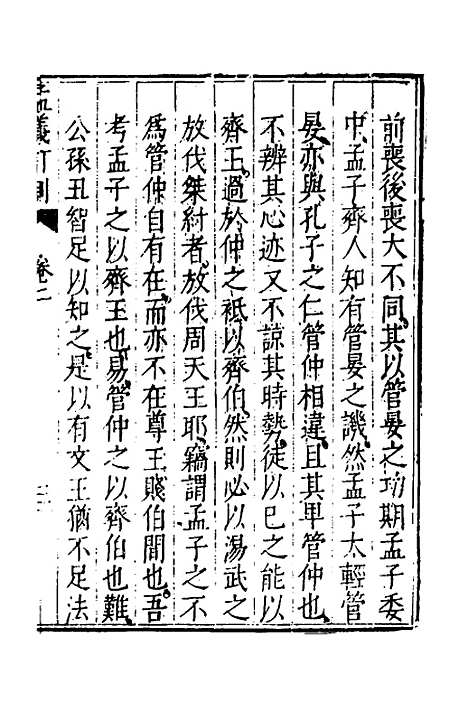 前喪後喪大不同其以管晏之功期孟子委
中孟子齊人知有管晏之譏然孟子太輕管
晏亦與孔子之仁管仲相違且其甲管仲也
不辨其心迹又不諒其時勢徒以巳之能以
齊王過於仲之祗以齊伯然則必以湯武之
放伐桀紂者放伐周天王耶竊謂孟子之不
爲管仲自有在而亦不在尊王賤伯間也吾
考孟子之以齊王也易管仲之以齊伯也難
公孫丑智足以知之是以有文王猶不足法
卷二